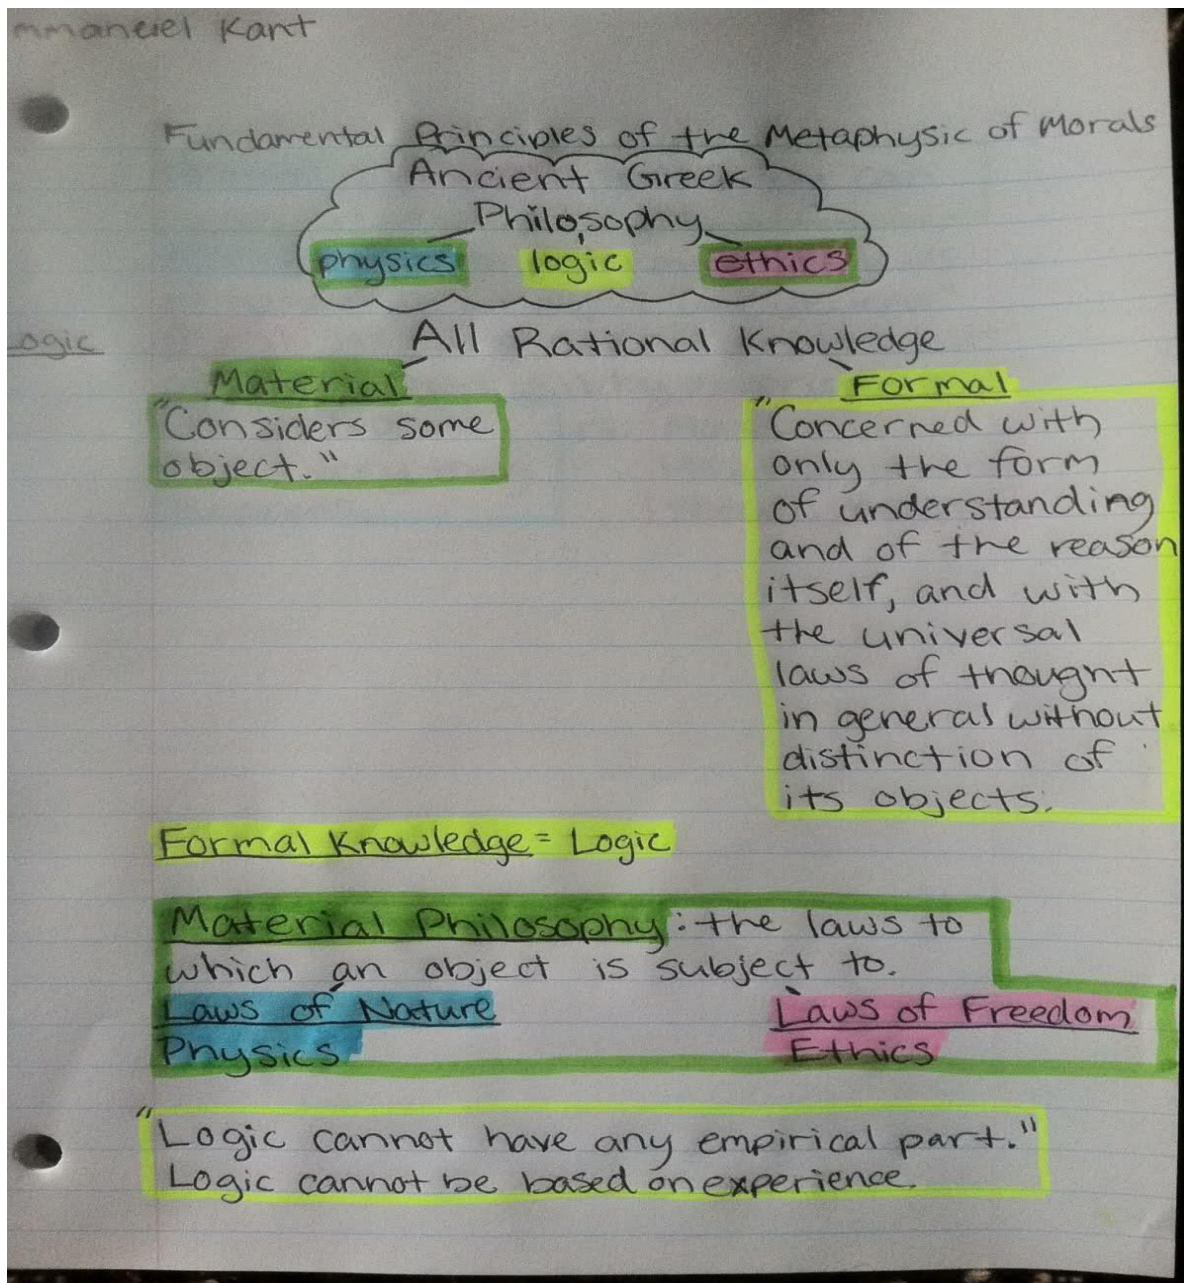 mmanuel Kant
Fundamental Principles of the Metaphysic of Morals
Ancient Greek
Philosophy
physics logic ethics
ogic
All Rational Knowledge
Material
"Considers some
object."
Formal
"Concerned with
only the form
of understanding
and of the reason
itself, and with
the universal
laws of thought
in general without
distinction of
its objects.
Formal Knowledge = Logic
Material Philosophy: the laws to
which an object is subject to.
Laws of Nature
Physics
Laws of Freedom
Ethics
"Logic cannot have any empirical part."
Logic cannot be based on experience.